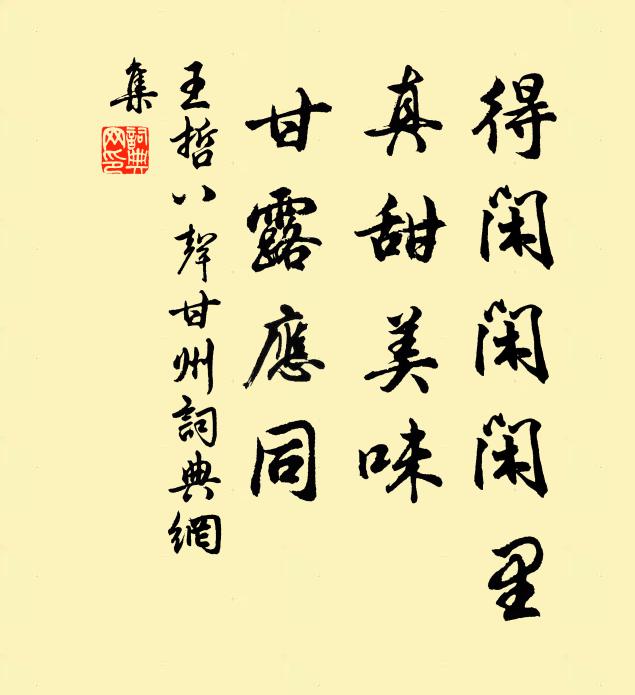 得閑閑閑里
真甜美味
甘露應同
王哲八聲甘州詞典網
集
詞典網印